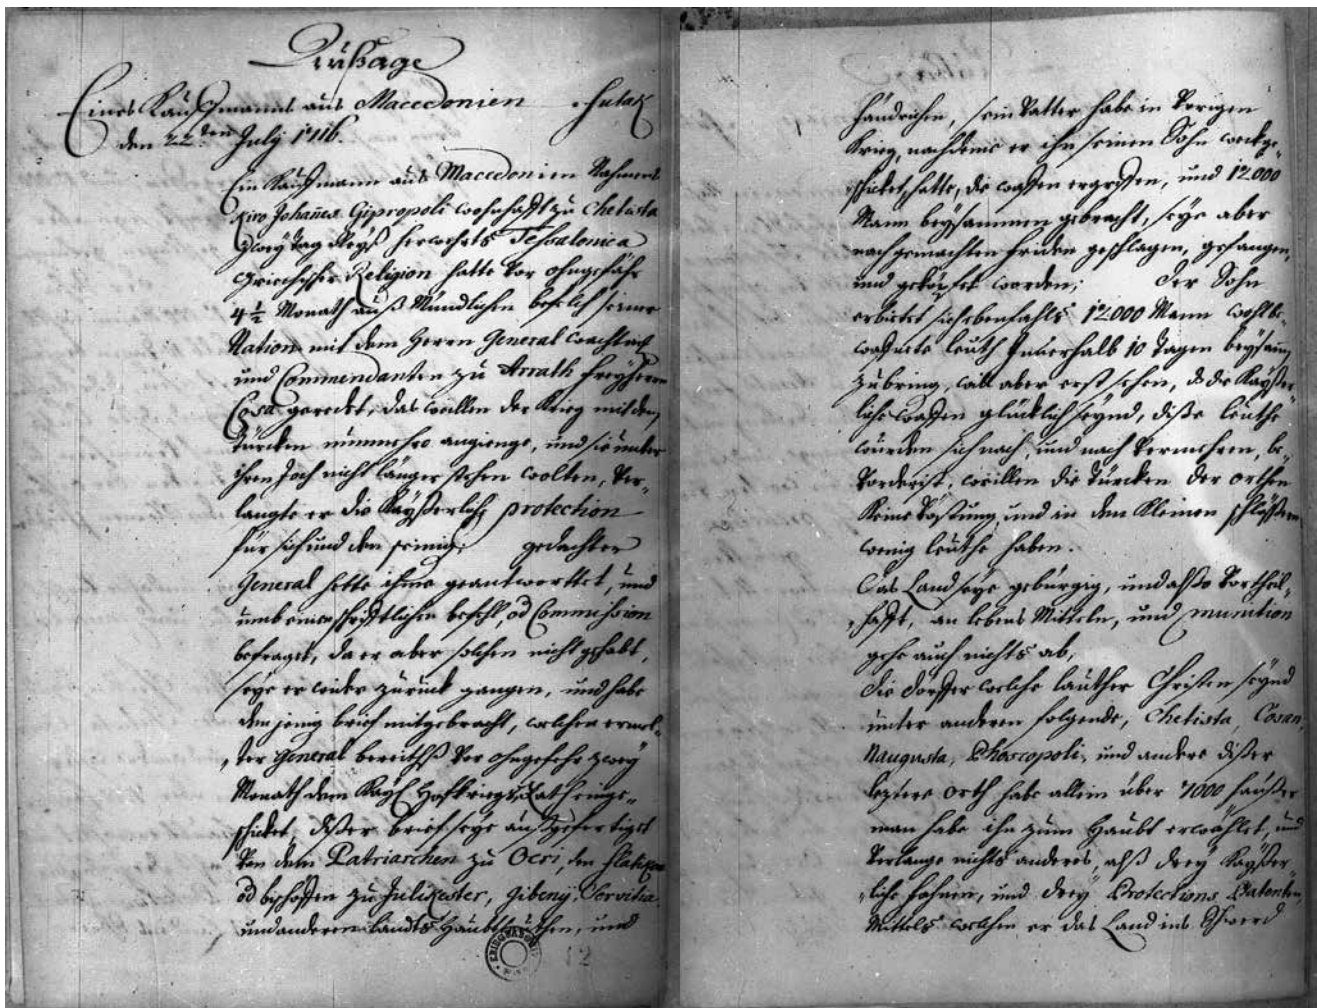 Außage
Eines Kauffmanns aus Macedonien
den 22.ten July 1716.
Ein Kauffmann aus Macedonien Nahmens
Kiro Johañes Gipropoli wohnhafft zu Chetista
zwey tag Reyß herwehrts Tessalonica
Griechischer Religion hatte vor ohngefähr
4½ Monath auß Mündlichen befelch seiner
Nation mit dem Herrn General Wachtmst
und Commendanten zu Arrath Freyherrn
Cosa geredet, das weillen der Krieg mit dem
Türcken nunmehro angienge, und sie unter
ihren Joch nicht länger stehen wolten, ver-
langte er die Kayßerliche protection
für sich und den seinig: gedachter
General hette ihme geantworttet, und
umb einen schrifftlichen befehl, od Commission
befraget, da er aber solchen nicht gehabt,
seye er wider zurück gangen, und habe
den jenig brief mitgebracht, welchen ermel-
ter General bereithß vor ohngefehr zwey
Monath dem Kayl Hofkriegs Rath einge-
schicket, dißer brief seye außgefertiget
von dem Patriarchen zu Ocri, den
od bischoffen zu Julikester, Gibenij, Servitia
und anderen Landts Haubtleüthen, und
KRIEGSARCHIV
12
fändrichen, sein Vatter habe in vorigen
Krieg, nachdeme er ihn seinen Sohn weckge-
schicket hatte, die waffen ergriffen, und 12000
Mann beysammen gebracht, seye aber
nach gemachten friden geschlagen, gefangen,
und geköpfet worden; Der Sohn
erbietet sich ebenfahls 12000 Mann wohlbe-
waffnete leüth Innerhalb 10 Tagen beysamn
zubring, will aber erst sehen, ds die Kayßer
liche waffen glücklich seynd, diße leüthe
wurden sich nach, und nach vermehren, be-
vorderist, weillen die Türcken der orthen
Keine Vöstung, und in den Kleinen schlößern
wenig leüthe haben.
Das Land seye gebürgig, und alßo vortheil-
hafft, an lebens Mitteln, und munition
gehe auch nichts ab,
die dörffer welche lauther Christen seynd
unter anderen folgende, Chetista, Cosan,
Naugusta, Phoscopoli, und andere dißer
leztere orth habe allein über 7000 häußer
man habe ihn zum Haubt erwählet, und
verlange nichts anderes, alß drey Kayßer-
liche fahnen, und drey Protections Patenten,
Mittels welchen er das Land ins Gewerd